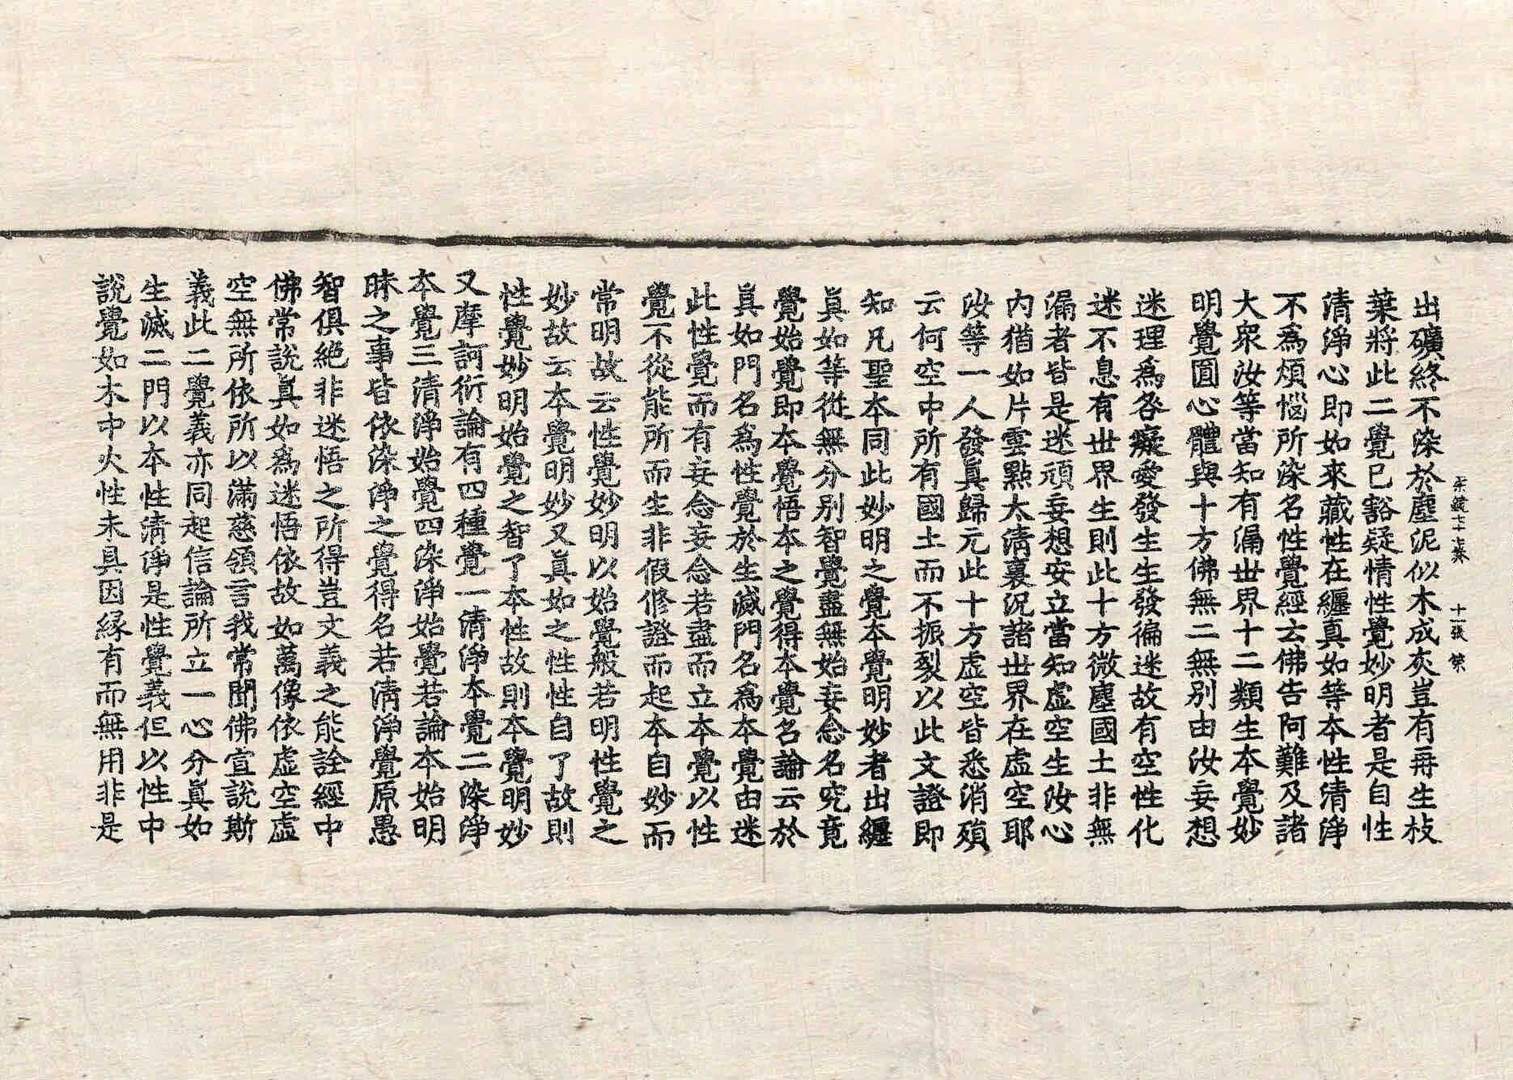 宗鏡七十七卷 十一張 策
出礦終不染於塵泥似木成灰豈有再生枝
葉將此二覺已豁疑情性覺妙明者是自性
清淨心即如來藏性在纏真如等本性清淨
不爲煩惱所染名性覺經云佛告阿難及諸
大衆汝等當知有漏世界十二類生本覺妙
明覺圓心體與十方佛無二無別由汝妄想
迷理爲咎癡愛發生生發徧迷故有空性化
迷不息有世界生則此十方微塵國土非無
漏者皆是迷頑妄想安立當知虛空生汝心
內猶如片雲點太清裏況諸世界在虛空耶
汝等一人發眞歸元此十方虛空皆悉消殞
云何空中所有國土而不振裂以此文證即
知凡聖本同此妙明之覺本覺明妙者出纏
眞如等從無分別智覺盡無始妄念名究竟
覺始覺即本覺悟本之覺得本覺名論云於
眞如門名爲性覺於生滅門名爲本覺由迷
此性覺而有妄念妄念若盡而立本覺以性
覺不從能所而生非假修證而起本自妙而
常明故云性覺妙明以始覺般若明性覺之
妙故云本覺明妙又眞如之性性自了故則
性覺妙明始覺之智了本性故則本覺明妙
又摩訶衍論有四種覺一清淨本覺二染淨
本覺三清淨始覺四染淨始覺若論本始明
昧之事皆依染淨之覺得名若清淨覺原愚
智俱絕非迷悟之所得豈文義之能詮經中
佛常說眞如爲迷悟依故如萬像依虛空虛
空無所依所以滿慈領言我常聞佛宣說斯
義此二覺義亦同起信論所立一心分眞如
生滅二門以本性清淨是性覺義但以性中
說覺如木中火性未具因緣有而無用非是